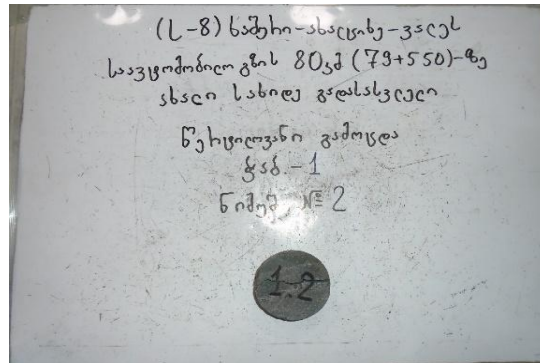 (ს-8) ხაშური-ახალციხე-ვალეს
საავტომობილო გზის 80კმ (79+550)-ზე
ახალი სახიდე გადასასვლელი
წერტილოვანი გამოცდა
ჭაბ.-1
ნიმუშ. № 2
1.2